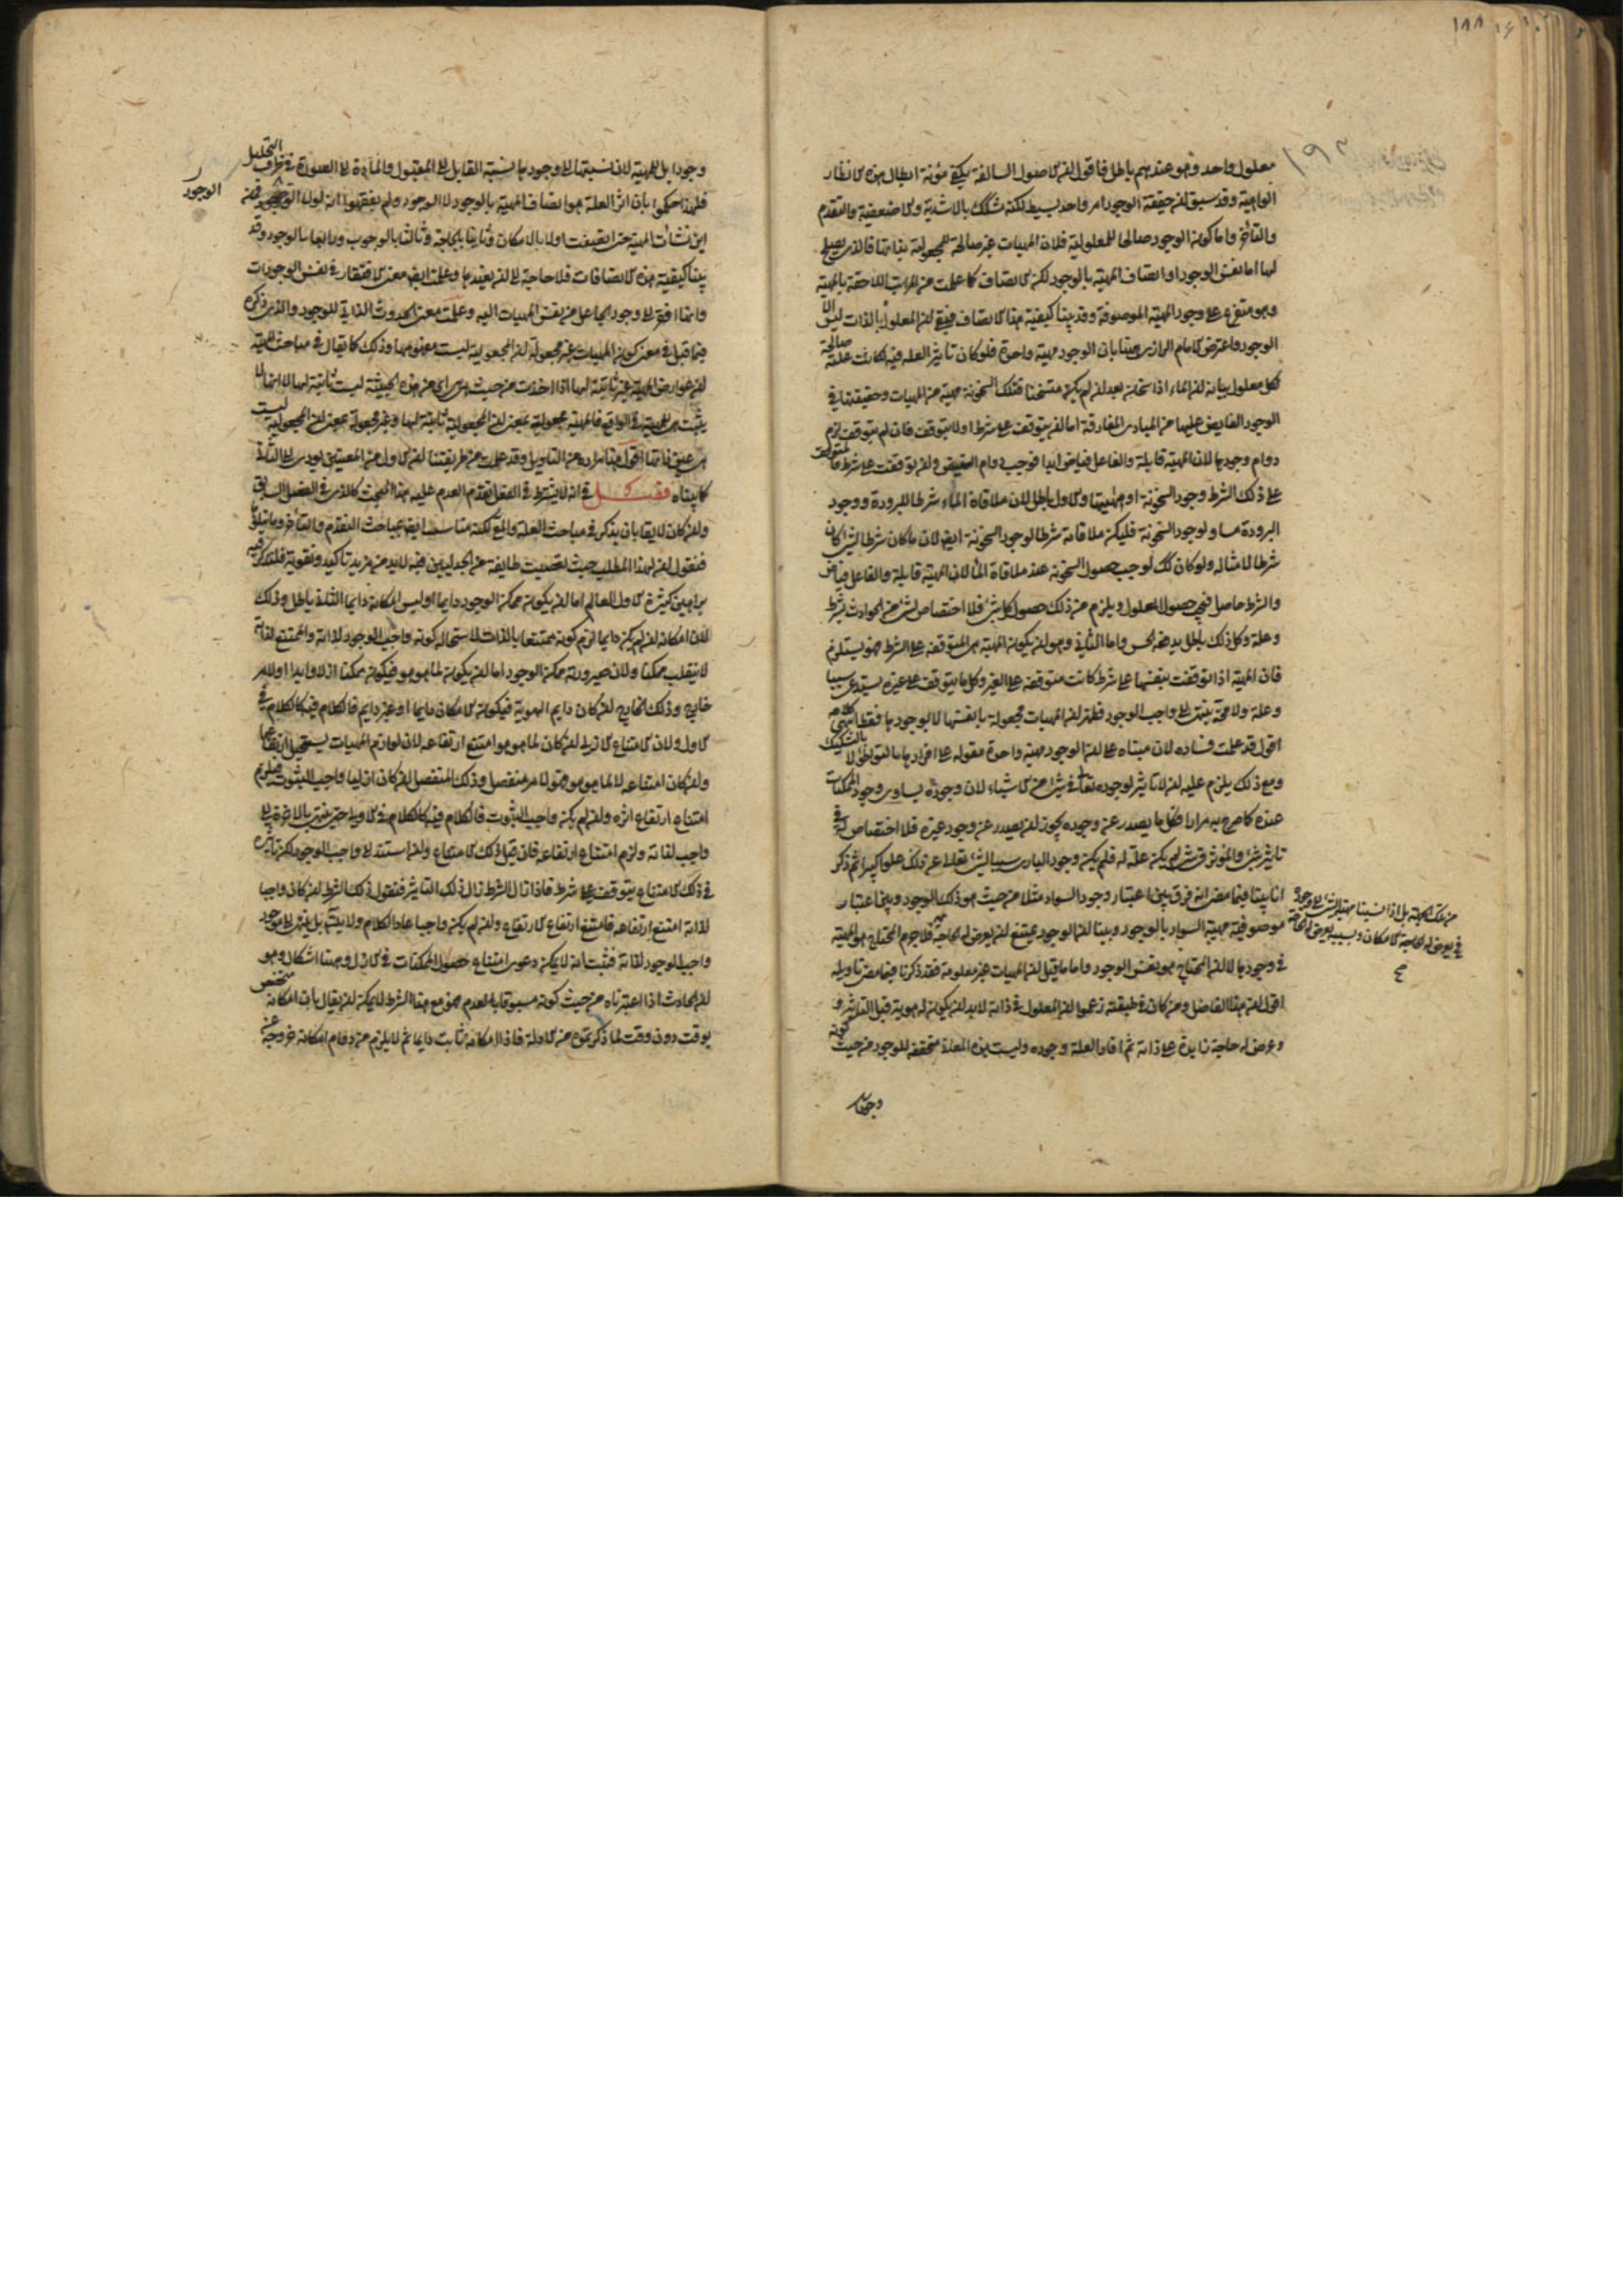 ١٨٨
١٩٣
معلول واحد وهو عندهم باطل فاقول ان الاصول السالفة يكفي مؤنة ابطال هذه الانظار
الواهية وقد سبق ان حقيقة الوجود امر واحد بسيط لكنه متشكك بالاشدية والاضعفية والتقدم
والتأخر واما كون الوجود صالحا للمعلولية فلان المهيات غير صالحة للمجعولية بذاتها فالذي يصلح
لها اما نفس الوجود او اتصاف المهية بالوجود لكن الاتصاف كما علمت من المراتب اللاحقة بالمهية
وهو متفرع على وجود المهية الموصوفة وقد بينا كيفية هذا الاتصاف فبقي ان المعلول بالذات ليس الا
الوجود واعترض الامام الرازي ههنا بان الوجود مهية واحدة فلو كان تاثير العلة فيه لكانت علة صالحة
لكل معلول بيانه ان الماء اذا سخن بعد ان لم يكن متسخنا فتلك السخونة مهية من المهيات وحقيقتها في
الوجود الفايض عليها من المبادي المفارقة اما ان يتوقف على شرط او لا يتوقف فان لم يتوقف لزم
دوام وجودها لان المهية قابلة والفاعل فياض ابدا فوجب دوام الفيض وان توقفت على شرط فالمتوقف
على ذلك الشرط وجود السخونة او مهيتها والاول باطل لان ملاقاة الماء شرط للبرودة ووجود
البرودة مساو لوجود السخونة فليكن ملاقاته شرطا لوجود السخونة ايضا لان ما كان شرطا لشي كان
شرطا لامثاله ولو كان كك لوجب حصول السخونة عند ملاقاة الماء لان المهية قابلة والفاعل فياض
والشرط حاصل فيجب حصول المعلول ويلزم من ذلك حصول كل شيء فلا اختصاص لشيء من الحوادث بشرط
وعلة وكل ذلك باطل يدفعه الحس واما الثاني وهو ان يكون المهية هي المتوقفة على الشرط فهو يستلزم
فان المهية اذا توقفت بنفسها على شرط كانت متوقفة على الغير وكل ما يتوقف على غيره يستدعي سببا
وعلة ولا محة ينتهي الى واجب الوجود فظهر ان المهيات مجعولة بانفسها لا بوجودها فقط انتهى كلامه
اقول قد علمت فساده لان مبناه على ان الوجود مهية واحدة مقولة على افرادها بالتواطؤ لا بالتشكيك
ومع ذلك يلزم عليه ان لا تاثير لوجوده تعالى في شيء من الاشياء لان وجوده يساوي وجود الممكنات
عنده كما صرح به مرارا فكل ما يصدر عن وجوده يجوز ان يصدر عن وجود غيره فلا اختصاص له في
تاثير شيء والمؤثر في شيء لم يكن علة له فلم يكن وجود الباري سببا لشيء تعالى عن ذلك علوا كبيرا ثم ذكر
انا بينا فيما مضى انه فرق بين اعتبار وجود السواد مثلا من حيث هو ذلك الوجود وبين اعتبار
موصوفية مهية السواد بالوجود وبينا ان الوجود يمتنع ان يعرض له الحاجة فلا جرم المحتاج هو المهية
في وجودها لا ان المحتاج هو نفس الوجود واما ما قيل ان المهيات غير معلومة فقد ذكرنا فيما مضى تاويله
اقول ان هذا الفاضل ومن كان في طبقته زعموا ان المعلول في ذاته لا بد ان يكون له هوية قبل التاثير و
وعرض له حاجة زايدة على ذاته ثم افاد العلة وجوده وليست هذه المعلة متحققة للوجود من حيث كونه
وجودا
من تلك الحيثية بل اذا نسبنا مهية الشيء الى وجود
في يعرض له الحاجة الامكان وبسببه يعرض له الحاجة
وجودا بل للمهية لان نسبتها الى وجودها نسبة القابل الى المقبول والمادة الى الصورة في ظرف التحليل
فلهذا حكموا بان اثر العلة هو اتصاف المهية بالوجود لا الوجود ولم يفقهوا انه لولا الوجود فمن
الوجود
اين نشأت المهية حتى اتصفت اولا بالامكان وثانيا بالحاجة وثالثا بالوجوب ورابعا بالوجود وقد
بينا كيفية هذه الاتصافات فلا حاجة الى ان نعيدها وعلمت ايضا معنى الافتقار في نفس الوجودات
وانها افقر الى وجود الجاعل من نفس المهيات اليه وعلمت معنى الحدوث الذاتي للوجود والذي ذكره
فيما قبل في معنى كون المهيات غير مجعولة ان المجعولية ليست مفهومها وذلك كما يقال في مباحث المهية
ان عوارض المهية غير ثابتة لها اذا اخذت من حيث هي اي من هذه الحيثية ليست ثابتة لها لا انها لا
يثبت للمهية في الواقع فالمهية مجعولة بمعنى ان المجعولية ثابتة لها وغير مجعولة بمعنى ان المجعولية ليست
هي عين ذاتها اقول هذا مراده من التاويل وقد علمت من طريقتنا ان الاول من المعنيين يودي الى الثاني
كما بيناه فصل في انه لا يشترط في الفعل تقدم العدم عليه هذا المبحث كالذي في الفصل السابق
وان كان لايقا بان يذكر في مباحث العلة والمع لكنه مناسب ايضا بمباحث التقدم والتأخر وما يتلوه
فنقول ان لهذا المطلب حيث تعصبت طايفة من الجدليين فيه لا بد من مزيد تاكيد وتقوية فلنذكر فيه
براهين كثيرة الاول العالم اما ان يكون ممكن الوجود دايما او ليس امكانه دايما الثاني باطل وذلك
لان امكانه ان لم يكن دايما لزم كونه ممتنعا بالذات لاستحالة كونه واجب الوجود لذاته والممتنع لذاته
لا ينقلب ممكنا ولان صيرورته ممكن الوجود اما ان يكون لما هو هو فيكون ممكنا ازلا وابدا او لامر
خارج وذلك الخارج ان كان دايم الهوية فيكون الامكان دايما او غير دايم فالكلام فيه كالكلام في
الاول ولان الامتناع الازلي ان كان لما هو هو امتنع ارتفاعه لان لوازم المهيات يستحيل ارتفاعها
وان كان امتناعه لا لما هو هو فهو لامر منفصل وذلك المنفصل ان كان ازليا واجب الثبوت فيلزم
امتناع ارتفاع اثره وان لم يكن واجب الثبوت فالكلام فيه كالكلام في الاول حتى ينتهي بالاخرة الى
واجب لذاته ولزم امتناع ارتفاعه فان قيل ذلك الامتناع وان استند الى واجب الوجود لكن تاثيره
في ذلك الامتناع يتوقف على شرط فاذا زال الشرط زال ذلك التاثير فنقول ذلك الشرط ان كان واجبا
لذاته امتنع ارتفاعه فامتنع ارتفاع الارتفاع وان لم يكن واجبا عاد الكلام ولا يتسلسل بل ينتهي الى موجود
واجب الوجود لذاته فثبت انه لا يمكن دعوى امتناع حصول الممكنات في الازل وههنا اشكال وهو
ان الحادث اذا اعتبرناه من حيث كونه مسبوقا بالعدم فهو مع هذا الشرط لا يمكن ان يقال بان امكانه متخصص
بوقت دون وقت لما ذكرتموه من الادلة فاذا امكانه ثابت دايما ثم لا يلزم من دوام امكانه خروجه عن